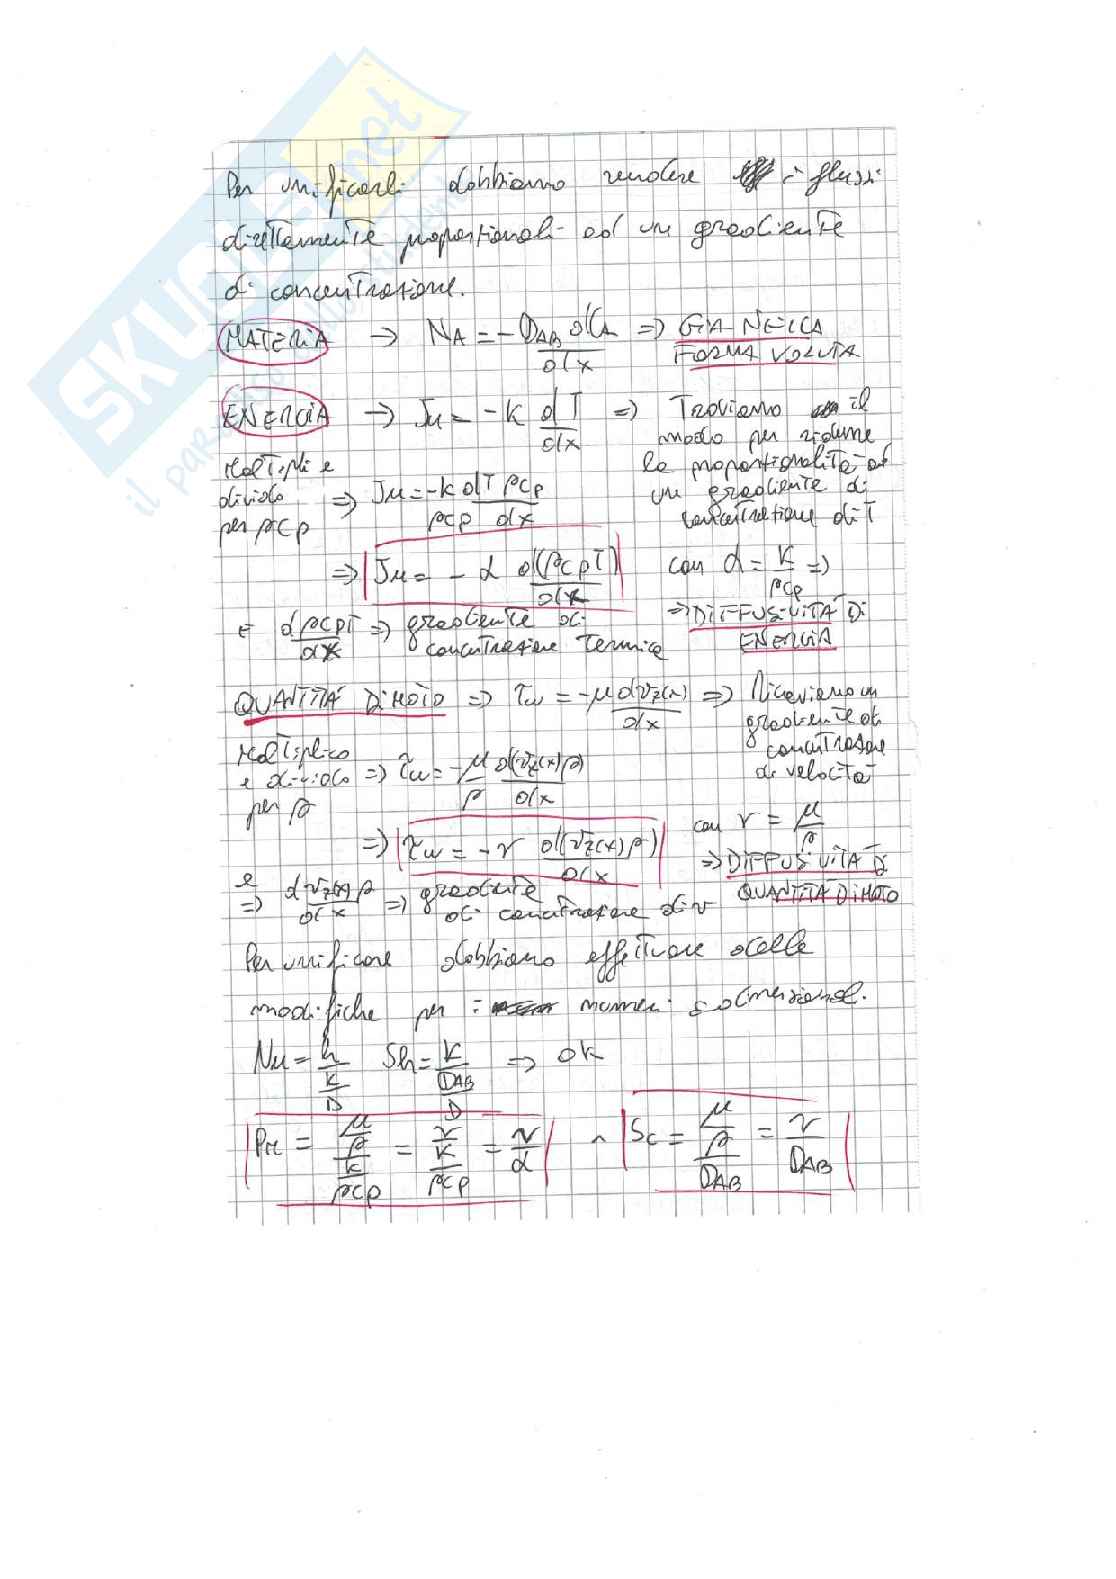 Per unificarli dobbiamo rendere i flussi
direttamente proporzionali ad un gradiente
di concentrazione.
MATERIA → N_A = - D_AB dC_A/dx ⇒ GIA NELLA FORMA VOLUTA
ENERGIA → Ju = - K dT/dx ⇒ Troviamo il
modo per ridurre
la proporzionalità ad
un gradiente di
concentrazione di T
Moltiplico e
divido
per ρCp ⇒ Ju = -k/ρCp dT ρCp/dx
⇒ Ju = - α d(ρCpT)/dx con α = K/ρCp ⇒
⇒ DIFFUSIVITÀ DI
ENERGIA
e dρCpT/dx ⇒ gradiente di
concentrazione termica
QUANTITÀ DI MOTO ⇒ τw = -μ dvz(x)/dx ⇒ Ricaviamo un
gradiente di
concentrazione
di velocità
Moltiplico
e divido
per ρ ⇒ τw = -μ/ρ d(vz(x)ρ)/dx
⇒ τw = -ν d(vz(x)ρ)/dx con ν = μ/ρ
⇒ DIFFUSIVITÀ DI
QUANTITÀ DI MOTO
e
⇒ dvz(x)ρ/dx ⇒ gradiente
di concentrazione di v
Per unificare dobbiamo effettuare delle
modifiche per i numeri adimensional.
Nu = h/(K/D) Sh = K/(D_AB/D) ⇒ OK
Pr = (μ/ρ)/(k/ρCp) = ν/(K/ρCp) = ν/α ^ Sc = (μ/ρ)/D_AB = ν/D_AB
SKUOLA.net